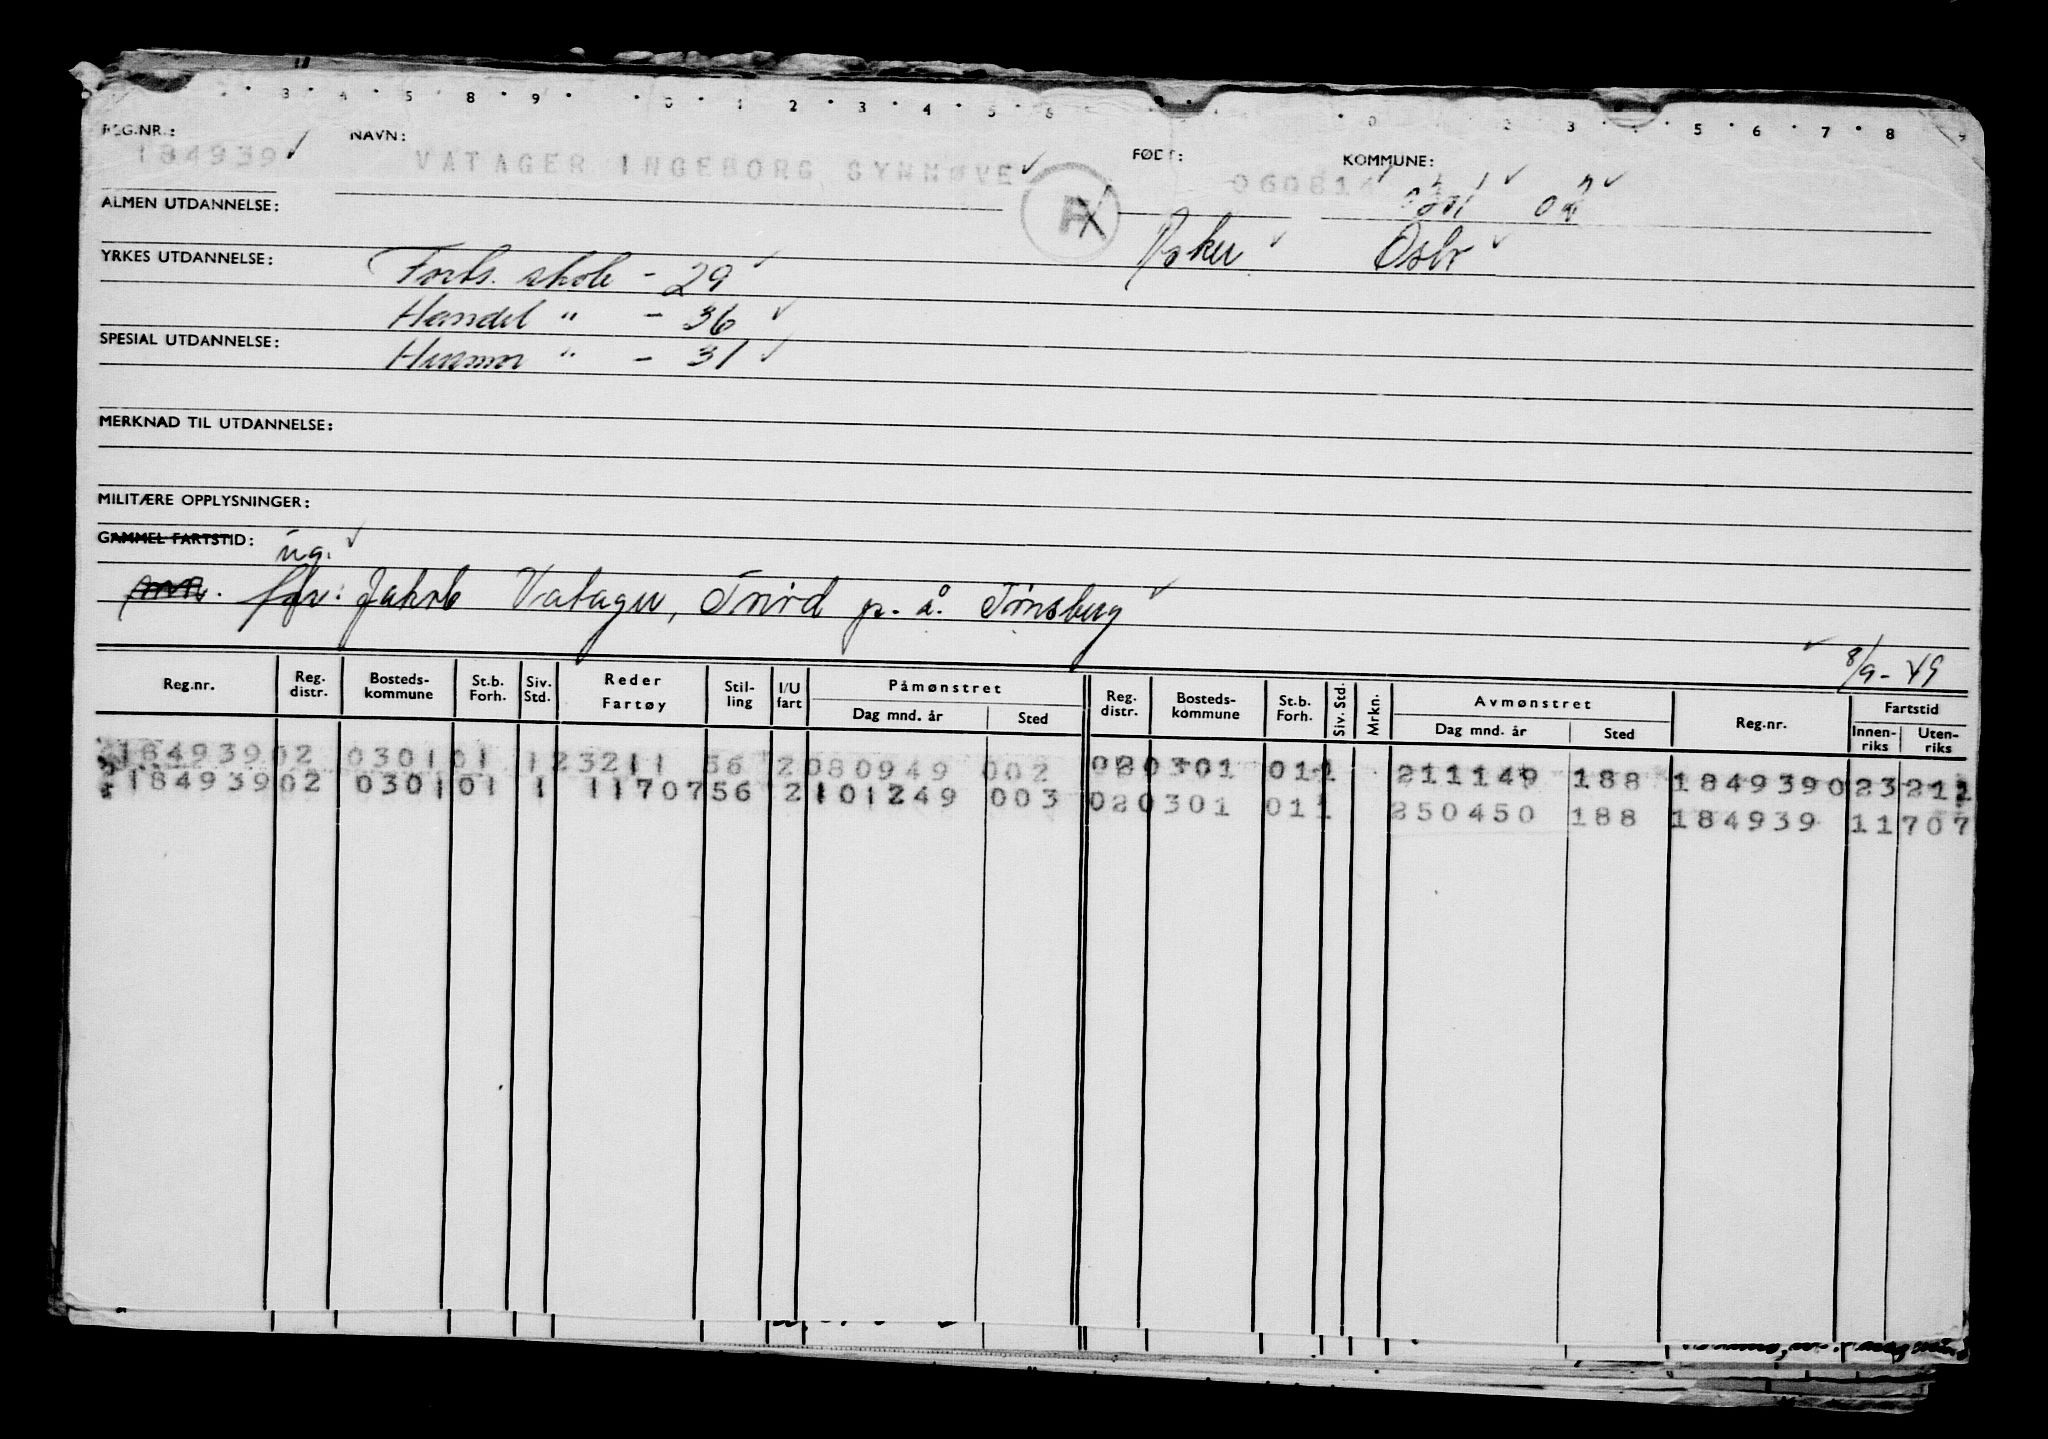 3 4 5 8 9 0 1 2 3 4 5 6 0 2 3 4 5 6 7 8 9
REG.NR.: NAVN: FØDT: KOMMUNE:
184939 VATAGER INGEBORG SYNNØVE 060814 0301 02
ALMEN UTDANNELSE: Asker Oslo
YRKES UTDANNELSE: Forts. skole - 29
Handel " - 36
SPESIAL UTDANNELSE: Husmor " - 31
MERKNAD TIL UTDANNELSE:
MILITÆRE OPPLYSNINGER:
GAMMEL FARTSTID: ug.
far: Jakob Vatager, Torød p. å. Tønsberg
8/9-49
Reg.nr. Reg. distr. Bosteds-kommune St.b. Forh. Siv. Std. Reder Fartøy Stil-ling I/U fart Påmønstret Dag mnd. år Sted Reg. distr. Bosteds-kommune St.b. Forh. Siv. Std. Mrkn. Avmønstret Dag mnd. år Sted Reg.nr. Fartstid Innen-riks Uten-riks
184939 02 0301 01 1 23211 56 2 080949 002 02 0301 01 1 211149 188 184939 023211
184939 02 0301 01 1 11707 56 2 101249 003 02 0301 01 1 250450 188 184939 11707